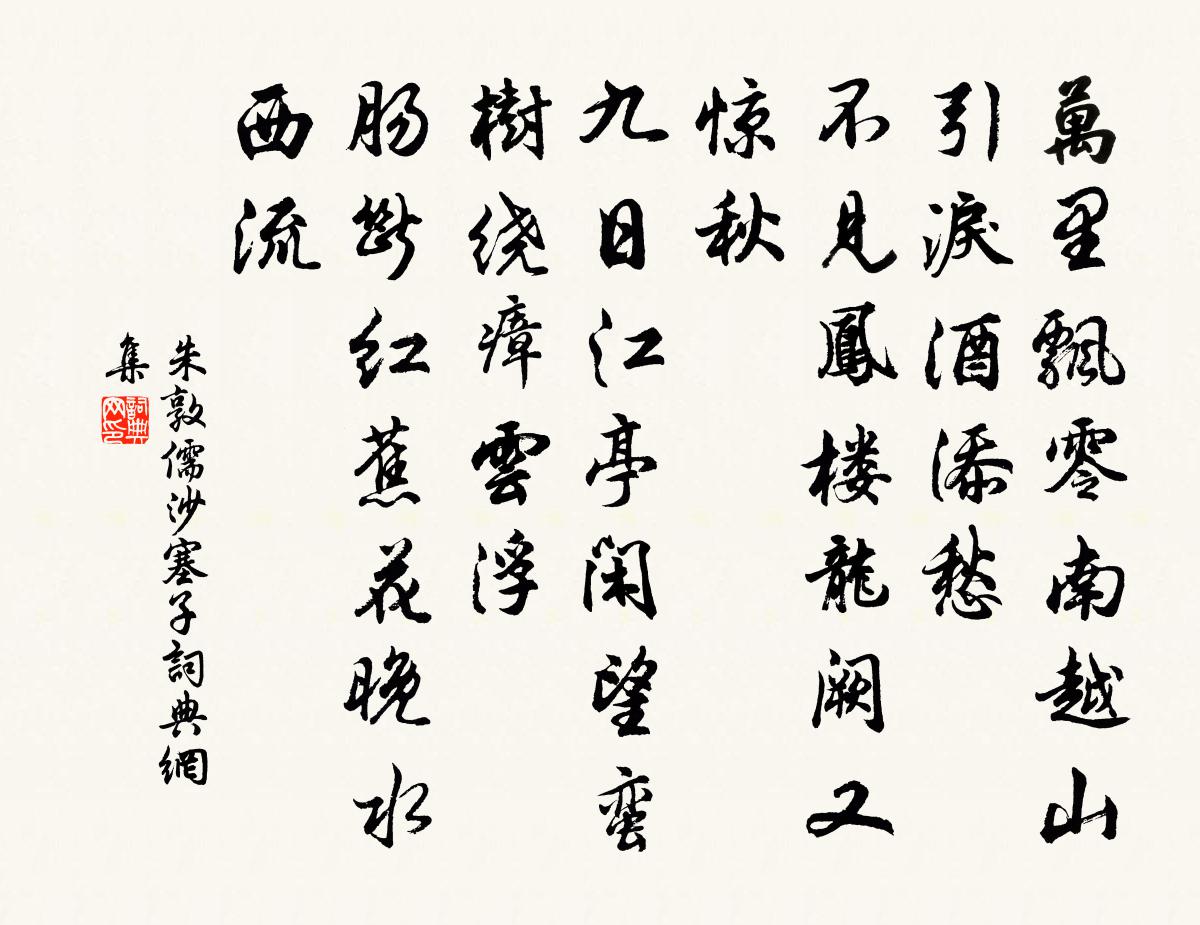 萬里飄零南越山
引淚酒添愁
不見鳳楼龍阙又
惊秋
九日江亭闲望蛮
樹绕瘴雲浮
肠斷红蕉花晚水
西流
朱敦儒沙塞子詞典網
集
詞典
网印